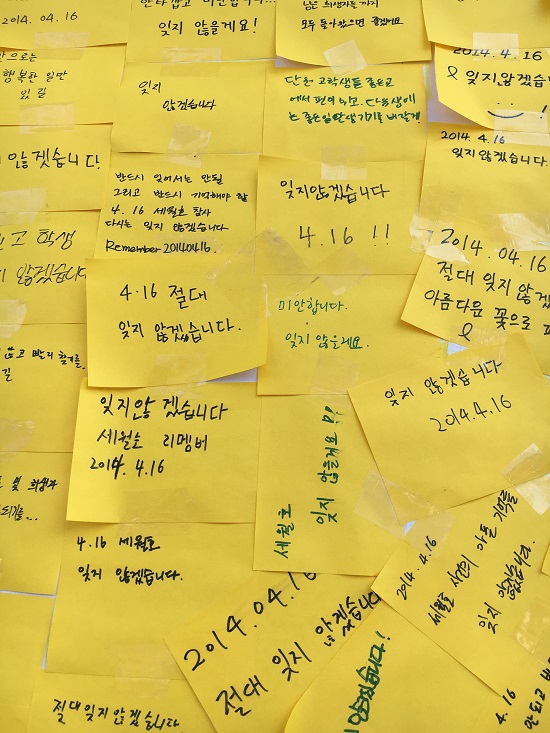 2014. 04. 16
잊지 않을게요!
모두 돌아왔으면 좋겠어요
앞으로는
행복한 일만
있길
잊지
않겠습니다
단원 고학생들 좋은곳
에서 편히
2014. 4. 16
잊지않겠습니다
2014. 4. 16
잊지 않겠습니다.
않겠습니다!
반드시 잊어서는 안될
그리고 반드시 기억해야 할
4. 16 세월호 참사
다시는 잊지 않겠습니다.
Remember 20140416.
잊지않겠습니다
4. 16 !!
고 학생
않겠습니다
2014. 04. 16
절대 잊지 않겠
아름다운 꽃으로
4.16 절대
잊지 않겠습니다.
미안합니다.
잊지 않을게요.
잊지 않겠습니다
2014.4.16
잊지않 겠습니다
세월호 리멤버
2014. 4.16
세월호
잊지 않을게요
4.16 세월호
잊지 않겠습니다.
2014. 4.16
세월호 사건의 아픈 기억을
잊지 않겠습니다.
2014.04.16
절대 잊지 않겠습니다
절대잊지 않겠습니다
4.16